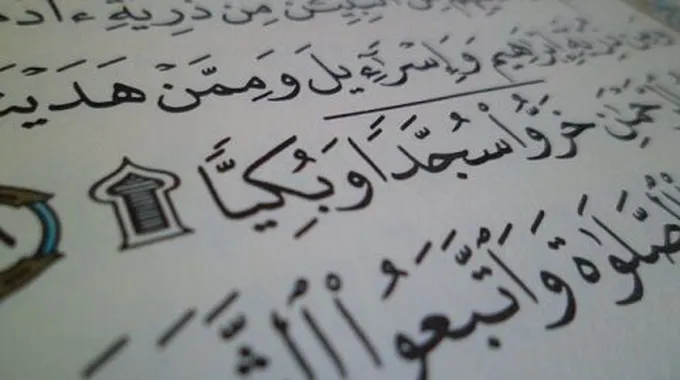 مِن ذُرِّيَّةِ ءَادَ
وَمِن ذُرِّيَّةِ إِبْرَٰهِيمَ وَإِسْرَٰٓءِيلَ وَمِمَّنْ هَدَيْنَ
ٱلرَّحْمَٰنِ خَرُّوا۟ سُجَّدًا وَبُكِيًّا ۩
ٱلصَّلَوٰةَ وَٱتَّبَعُوا۟ ٱلشَّ